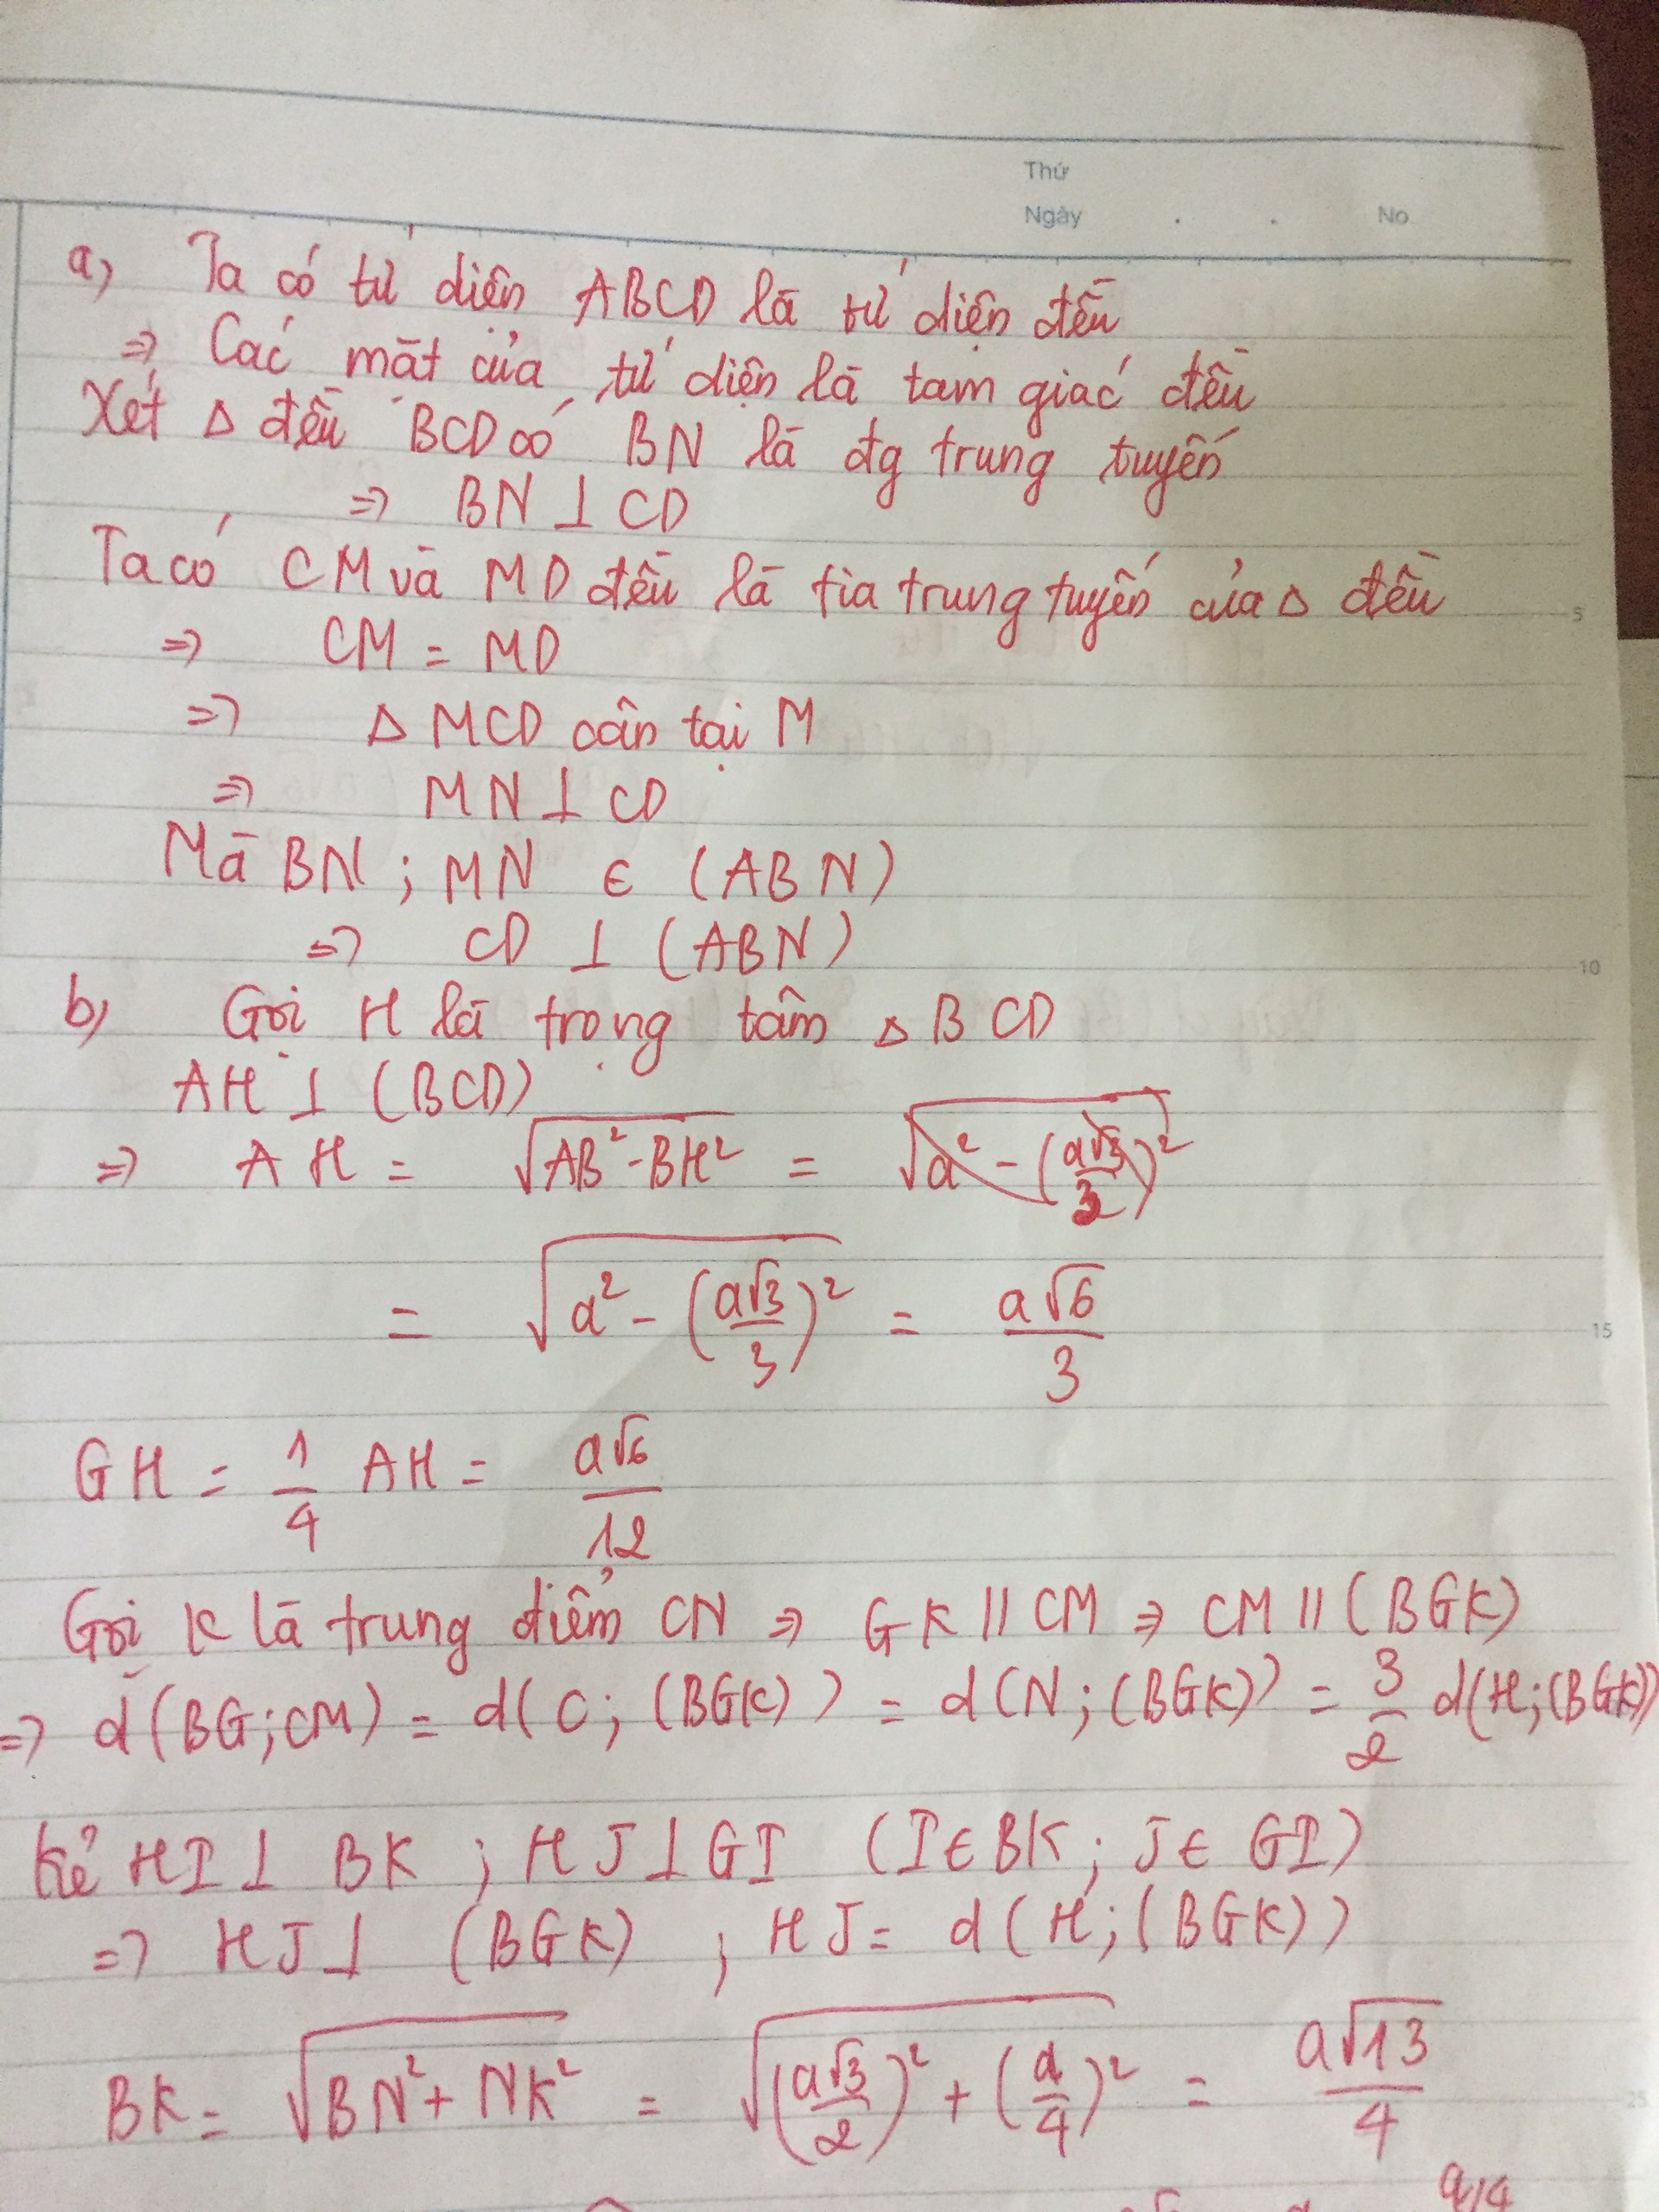 Thứ
Ngày . . No
a) Ta có tứ diện ABCD là tứ diện đều
=> Các mặt của tứ diện là tam giác đều
Xét Δ đều BCD có BN là đg trung tuyến
=> BN ⊥ CD
Ta có CM và MD đều là tia trung tuyến của Δ đều
=> CM = MD
=> Δ MCD cân tại M
=> MN ⊥ CD
Mà BN ; MN ∈ (ABN)
=> CD ⊥ (ABN)
b) Gọi H là trọng tâm Δ BCD
AH ⊥ (BCD)
=> AH = √(AB² - BH²) = √(a² - (a√3/3)²)
= √(a² - (a√3/3)²) = a√6/3
GH = 1/4 AH = a√6/12
Gọi K là trung điểm CN => GK // CM => CM // (BGK)
=> d(BG; CM) = d(C; (BGK)) = d(N; (BGK)) = 3/2 d(H; (BGK))
Kẻ HI ⊥ BK ; HJ ⊥ GI (I ∈ BK ; J ∈ GI)
=> HJ ⊥ (BGK) ; HJ = d(H; (BGK))
BK = √(BN² + NK²) = √((a√3/2)² + (a/4)²) = a√13/4
5
10
15
25